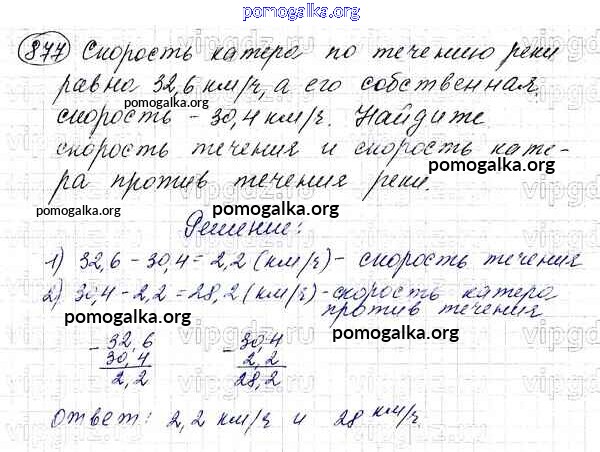 pomogalka.org
877 Скорость катера по течению реки
равна 32,6 км/ч, а его собственная
pomogalka.org
скорость - 30,4 км/ч. Найдите
скорость течения и скорость кате-
pomogalka.org
ра против течения реки.
pomogalka.org
pomogalka.org
Решение:
1) 32,6 - 30,4 = 2,2 (км/ч) - скорость течения
pomogalka.org
2) 30,4 - 2,2 = 28,2 (км/ч) - скорость катера
против течения
pomogalka.org
- 32,6 - 30,4
30,4 2,2
2,2 28,2
pomogalka.org
pomogalka.org
ответ: 2,2 км/ч и 28 км/ч.